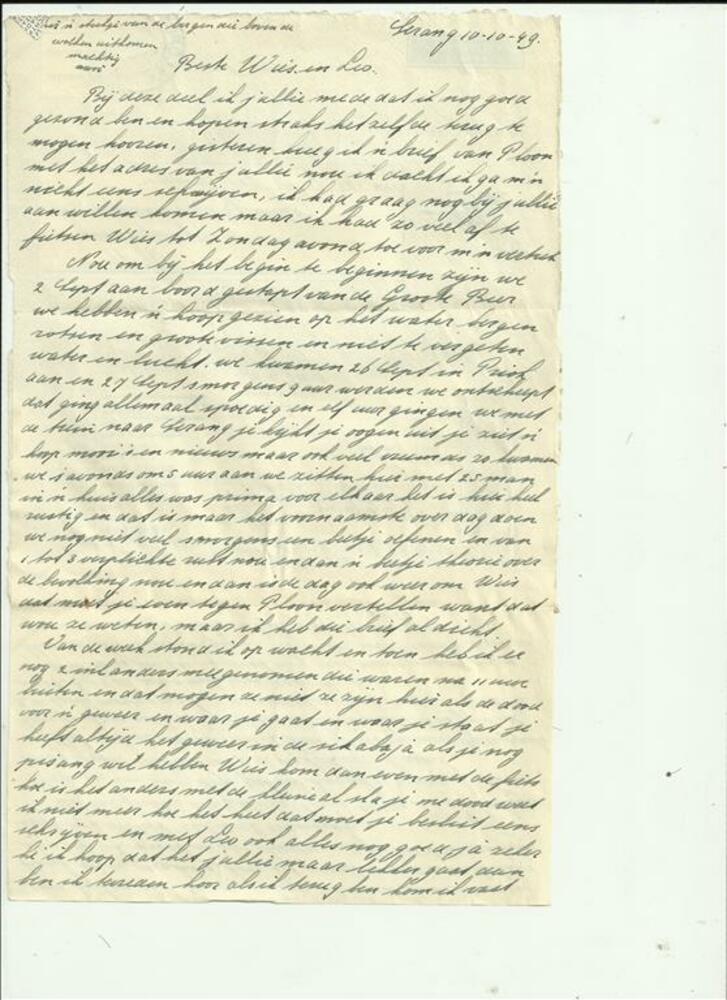 n stukje van de bergen die boven de
wolken uitkomen
machtig
mooi
Serang 10-10-49.
Beste Wies en Leo.
Bij deze deel ik jullie mede dat ik nog goed
gezond ben en hopen straks hetzelfde terug te
mogen hooren, gisteren kreeg ik n brief van Ploon
met het adres van jullie nou ik dacht ik ga m'n
nicht eens schrijven, ik had graag nog bij jullie
aan willen komen maar ik had zo veel af te
fietsen Wies tot Zondagavond toe voor m'n vertrek
Nou om bij het begin te beginnen zijn we
2 Sept aan boord gestapt van de Groote Beer
we hebben n hoop gezien op het water bergen
rotsen en groote vissen en niet te vergeten
water en lucht. we kwamen 26 Sept in Priok
aan en 27 Sept smorgens 9 uur werden we ontscheept
dat ging allemaal spoedig en elf uur gingen we met
de trein naar Serang je kijkt je oogen uit je ziet n
hoop moois en nieuws maar ook veel vreemds zo kwamen
we s'avonds om 5 uur aan we zitten hier met 25 man
in n huis alles was prima voor elkaar het is hier heel
rustig en dat is maar het voornaamste over dag doen
we nog niet veel smorgens een beetje oefenen en van
1 tot 3 verplichte rust nou en dan n beetje theorie over
de bevolking nou en dan is de dag ook weer om Wies
dat moet je even tegen Ploon vertellen want dat
wou ze weten, maar ik heb die brief al dicht.
Van de week stond ik op wacht en toen heb ik er
nog 2 inlanders meegenomen die waren na 11 uur
buiten en dat mogen ze niet ze zijn hier als de dood
voor n geweer en waar je gaat en waar je staat je
heeft altijd het geweer in de als je nog
pisang wil hebben Wies kom dan even met de fiets
hoe is het anders met de kleine al sla je me dood weet
ik niet meer hoe het heet dat moet je beslist eens
schrijven en met Leo ook alles nog goed ja zeker
hé ik hoop dat het jullie maar lekker gaat dan
ben ik tevreden hoor als ik terug ben kom ik vast